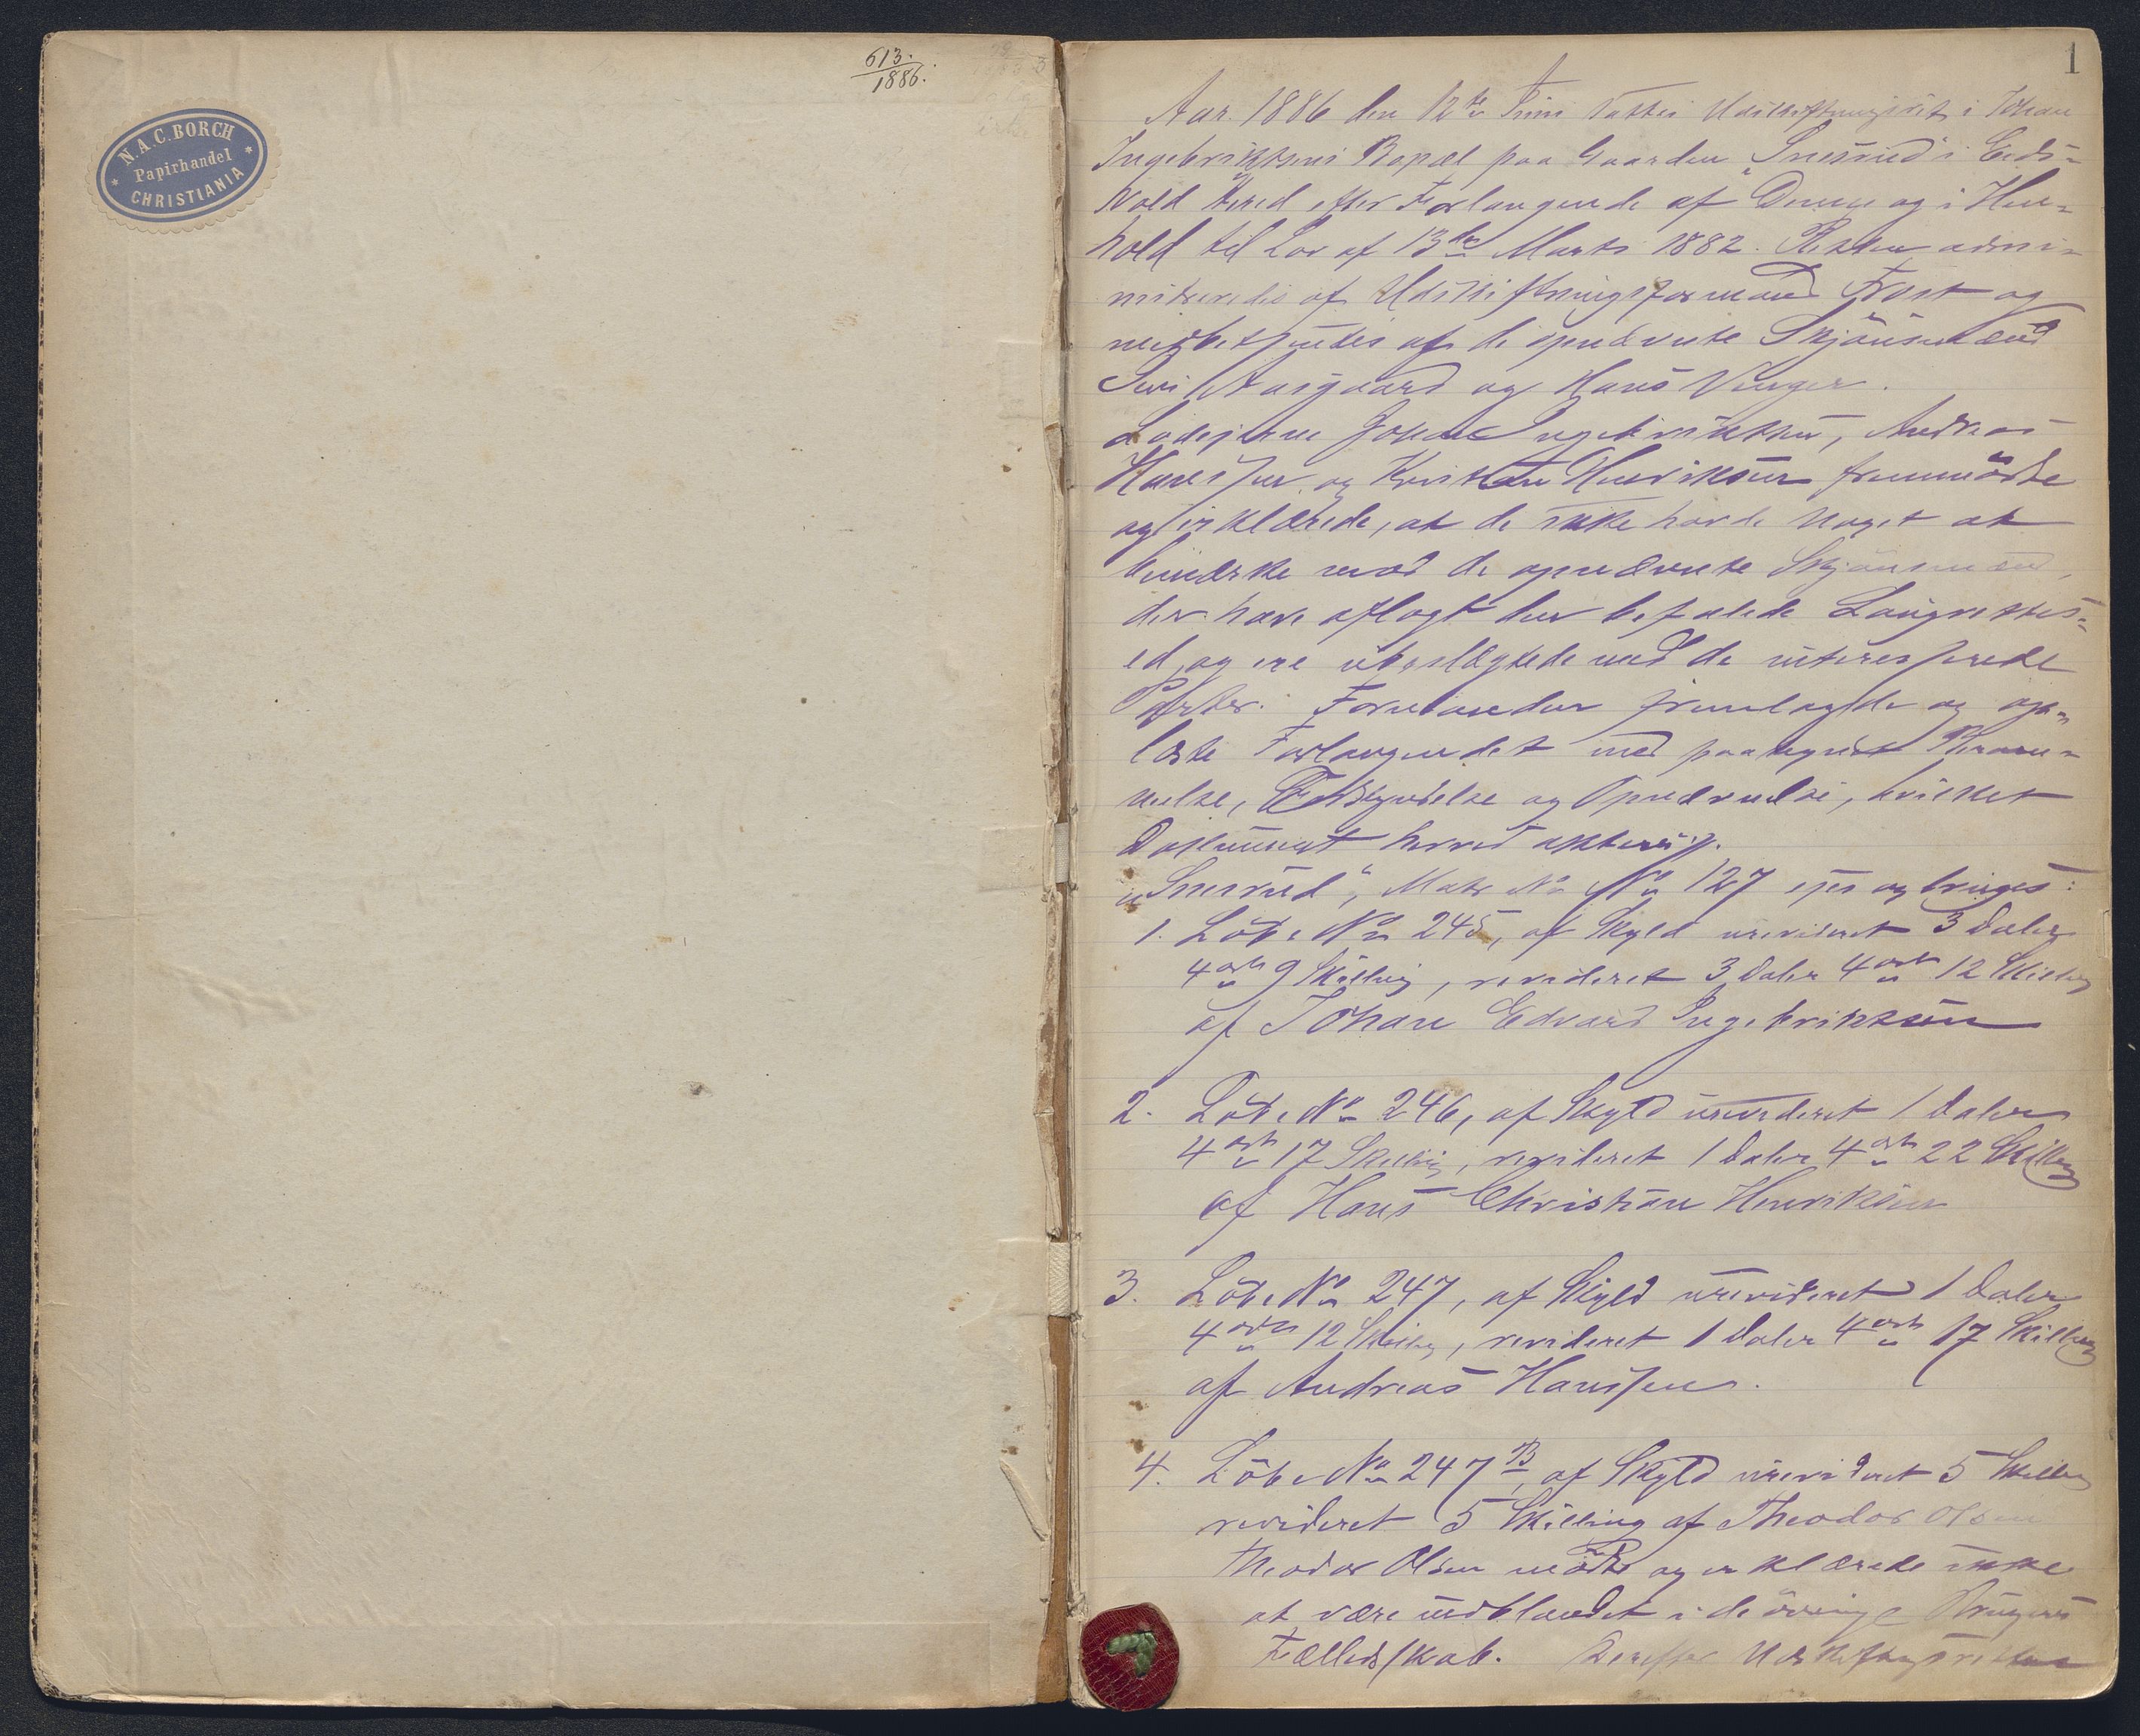 613.
1886.
N.A.C. BORCH
Papirhandel
CHRISTIANIA
1
Aar 1886 den 12te Juni sattes Udskiftningsret i Johan
Ingebrigtsens Bopæl paa Gaarden „Snesrud“ i Eids=
vold efter Forlangende af Denne og i Hen=
hold til Lov af 13de Marts 1882. Retten admi=
nistreredes af Udskiftningsformand Frost og
medbetjentes af de opnævnte Skjønsmænd
Aasgaard og Hans Vinger.
Lodejerne Johan Ingebriktsen, Andreas
Hanssen og Kristian Henriksen fremmødte
og erklærede, at de ikke havde noget at
bemærke mod de opnævnte Skjønsmænd,
der have aflagt den befalede Laugrettes=
ed, og ere ubeslægtede med de interesserede
Parter. Formanden fremlagde og op=
læste Forlangendet med paategnet Beram=
melse, Forkyndelse og Opnævnelse, hvilket
Dokument herved
„Snesrud“, Matr No No 127 ejes og bruges:
1. Løbe No 245, af Skyld urevideret 3 Daler
4 ort 9 Skilling, revideret 3 Daler 4 ort 12 Skilling
af Johan Edvard Ingebriktsen
2. Løbe No 246, af Skyld urevideret 1 Daler
4 ort 17 Skilling, revideret 1 Daler 4 ort 22 Skilling
af Hans Christian Henriksen
3. Løbe No 247, af Skyld urevideret 1 Daler
4 ort 12 Skilling, revideret 1 Daler 4 ort 17 Skilling
af Andreas Hanssen.
4. Løbe No 247 B, af Skyld urevideret 5 Skilling
revideret 5 Skilling af Theodor Olsen
Theodor Olsen mødte og erklærede ikke
at være indblandet i de øvrige Brugeres
Fælledsskab. Derefter Udskiftningsretten